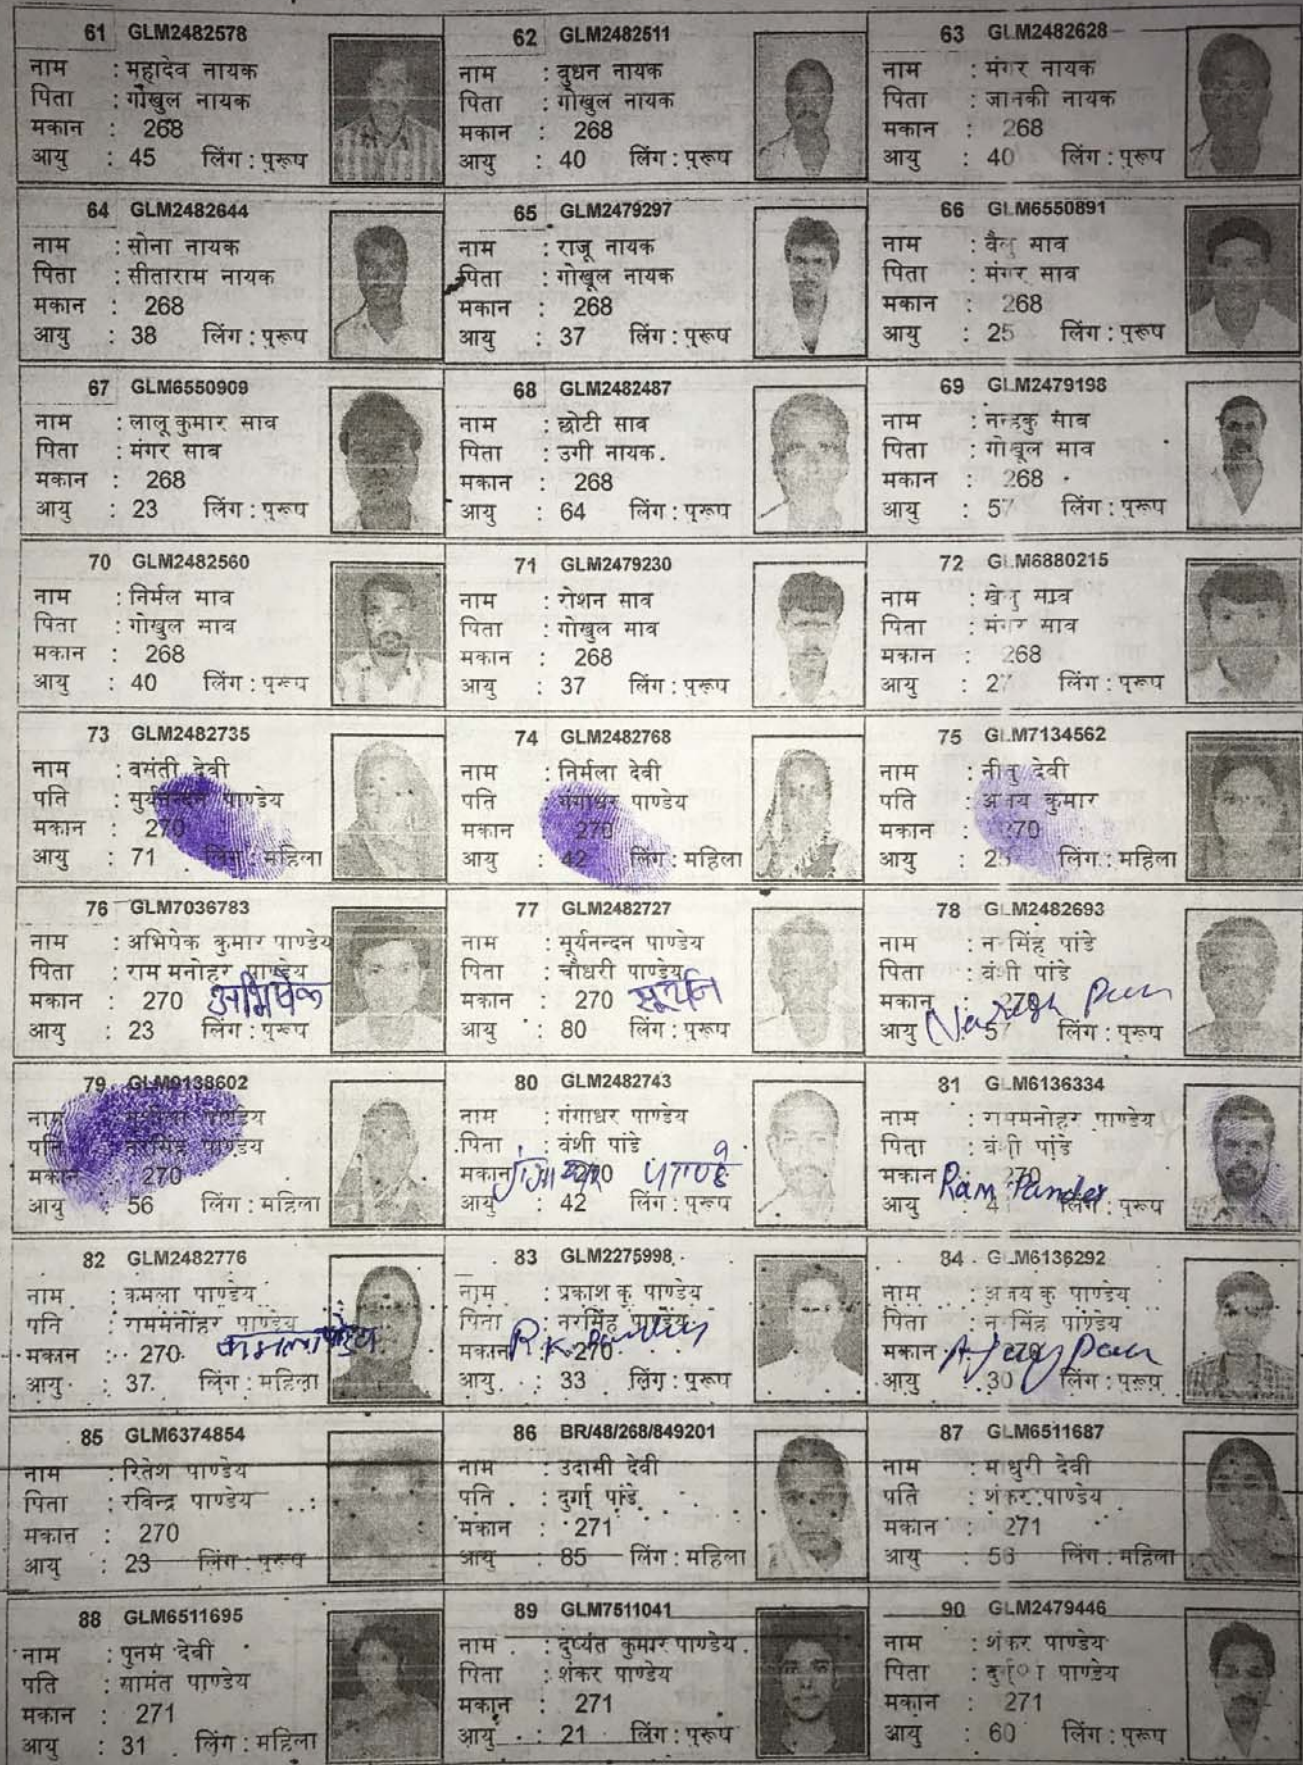 61 GLM2482578
नाम : महादेव नायक
पिता : गोखुल नायक
मकान : 268
आयु : 45 लिंग : पुरूष
62 GLM2482511
नाम : बुधन नायक
पिता : गोखुल नायक
मकान : 268
आयु : 40 लिंग : पुरूष
63 GLM2482628
नाम : मंगर नायक
पिता : जानकी नायक
मकान : 268
आयु : 40 लिंग : पुरूष
64 GLM2482644
नाम : सोना नायक
पिता : सीताराम नायक
मकान : 268
आयु : 38 लिंग : पुरूष
65 GLM2479297
नाम : राजू नायक
पिता : गोखूल नायक
मकान : 268
आयु : 37 लिंग : पुरूष
66 GLM6550891
नाम : साव
पिता : मंगर साव
मकान : 268
आयु : 25 लिंग : पुरूष
67 GLM6550909
नाम : लालू कुमार साव
पिता : मंगर साव
मकान : 268
आयु : 23 लिंग : पुरूष
68 GLM2482487
नाम : छोटी साव
पिता : उगी नायक
मकान : 268
आयु : 64 लिंग : पुरूष
69 GLM2479198
नाम : नन्हकु साव
पिता : गोखूल साव
मकान : 268
आयु : 57 लिंग : पुरूष
70 GLM2482560
नाम : निर्मल साव
पिता : गोखुल साव
मकान : 268
आयु : 40 लिंग : पुरूष
71 GLM2479230
नाम : रोशन साव
पिता : गोखुल साव
मकान : 268
आयु : 37 लिंग : पुरूष
72 GLM6880215
नाम : साव
पिता : मंगर साव
मकान : 268
आयु : 27 लिंग : पुरूष
73 GLM2482735
नाम : वसंती देवी
पति : सुर्यनन्दन पाण्डेय
मकान : 270
आयु : 71 लिंग : महिला
74 GLM2482768
नाम : निर्मला देवी
पति : गंगाधर पाण्डेय
मकान : 270
आयु : 42 लिंग : महिला
75 GLM7134562
नाम : नीतु देवी
पति : अजय कुमार
मकान : 270
आयु : लिंग : महिला
76 GLM7036783
नाम : अभिषेक कुमार पाण्डेय
पिता : राम मनोहर पाण्डेय
मकान : 270 अभिषेक
आयु : 23 लिंग : पुरूष
77 GLM2482727
नाम : सूर्यनन्दन पाण्डेय
पिता : चौधरी पाण्डेय
मकान : 270
आयु : 80 लिंग : पुरूष
78 GLM2482693
नाम : नरसिंह पांडे
पिता : वंशी पांडे
मकान : 270
आयु : 57 लिंग : पुरूष
79 GLM9138602
नाम : पाण्डेय
पति : नरसिंह पाण्डेय
मकान : 270
आयु : 56 लिंग : महिला
80 GLM2482743
नाम : गंगाधर पाण्डेय
पिता : वंशी पांडे
मकान : 270
आयु : 42 लिंग : पुरूष
81 GLM6136334
नाम : राममनोहर पाण्डेय
पिता : वंशी पांडे
मकान : 270 Ram Pandey
आयु : लिंग : पुरूष
82 GLM2482776
नाम : कमला पाण्डेय
पति : राममंनोहर पाण्डेय
मकान : 270
आयु : 37 लिंग : महिला
83 GLM2275998
नाम : प्रकाश कु पाण्डेय
पिता : नरसिंह पाण्डेय
मकान : 270
आयु : 33 लिंग : पुरूष
84 GLM6136292
नाम : अजय कु पाण्डेय
पिता : नरसिंह पाण्डेय
मकान : 270
आयु : 30 लिंग : पुरूष
85 GLM6374854
नाम : रितेश पाण्डेय
पिता : रविन्द्र पाण्डेय
मकान : 270
आयु : 23 लिंग : पुरूष
86 BR/48/268/849201
नाम : उदासी देवी
पति : दुर्गा पांडे
मकान : 271
आयु : 85 लिंग : महिला
87 GLM6511687
नाम : माधुरी देवी
पति : शंकर पाण्डेय
मकान : 271
आयु : लिंग : महिला
88 GLM6511695
नाम : पुनम देवी
पति : सामंत पाण्डेय
मकान : 271
आयु : 31 लिंग : महिला
89 GLM7511041
नाम : दुष्यंत कुमार पाण्डेय
पिता : शंकर पाण्डेय
मकान : 271
आयु : 21 लिंग : पुरूष
90 GLM2479446
नाम : शंकर पाण्डेय
पिता : पाण्डेय
मकान : 271
आयु : 60 लिंग : पुरूष